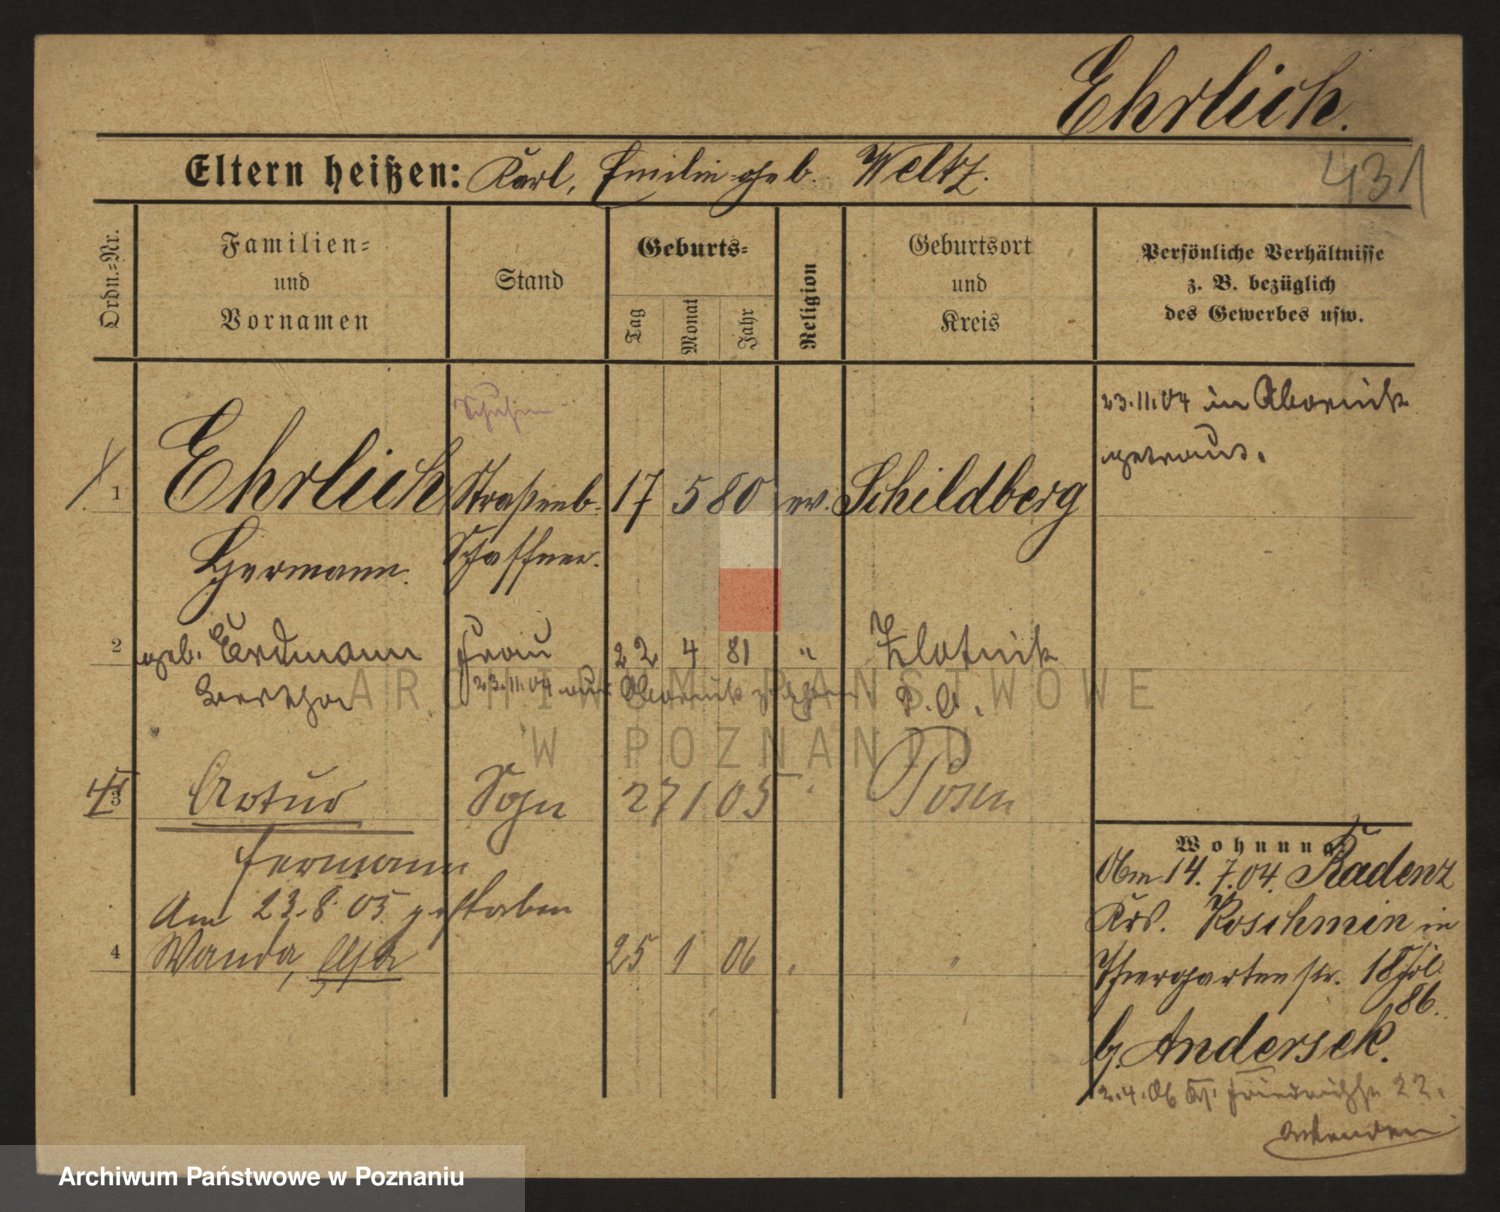 Ehrlich.
Eltern heißen: Karl, Emilie geb. Weltz.
431
Ordn.-Nr.
Familien-
und
Vornamen
Stand
Geburts-
Tag
Monat
Jahr
Religion
Geburtsort
und
Kreis
Persönliche Verhältnisse
z. B. bezüglich
des Gewerbes usw.
23.11.04 in Obornick
getraut.
1 Ehrlich Straßenb. 17 5 80 ev. Schildberg
Hermann. Schaffner.
2 geb. Erdmann Frau 22 4 81 " Zlotnik
Bertha 23.11.04 aus Obornick
3 Artur Sohn 27 1 05 Posen
Hermann
Am 23.8.05 gestorben
4 Wanda, 25 1 06 "
Wohnung
14.7.04. Radenz
Krs. Koschmin in
Thiergartenstr. 18
86.
b. Andersek.
2.4.06 Friedrichstr 22.
ARCHIWUM PAŃSTWOWE
W POZNANIU
Archiwum Państwowe w Poznaniu